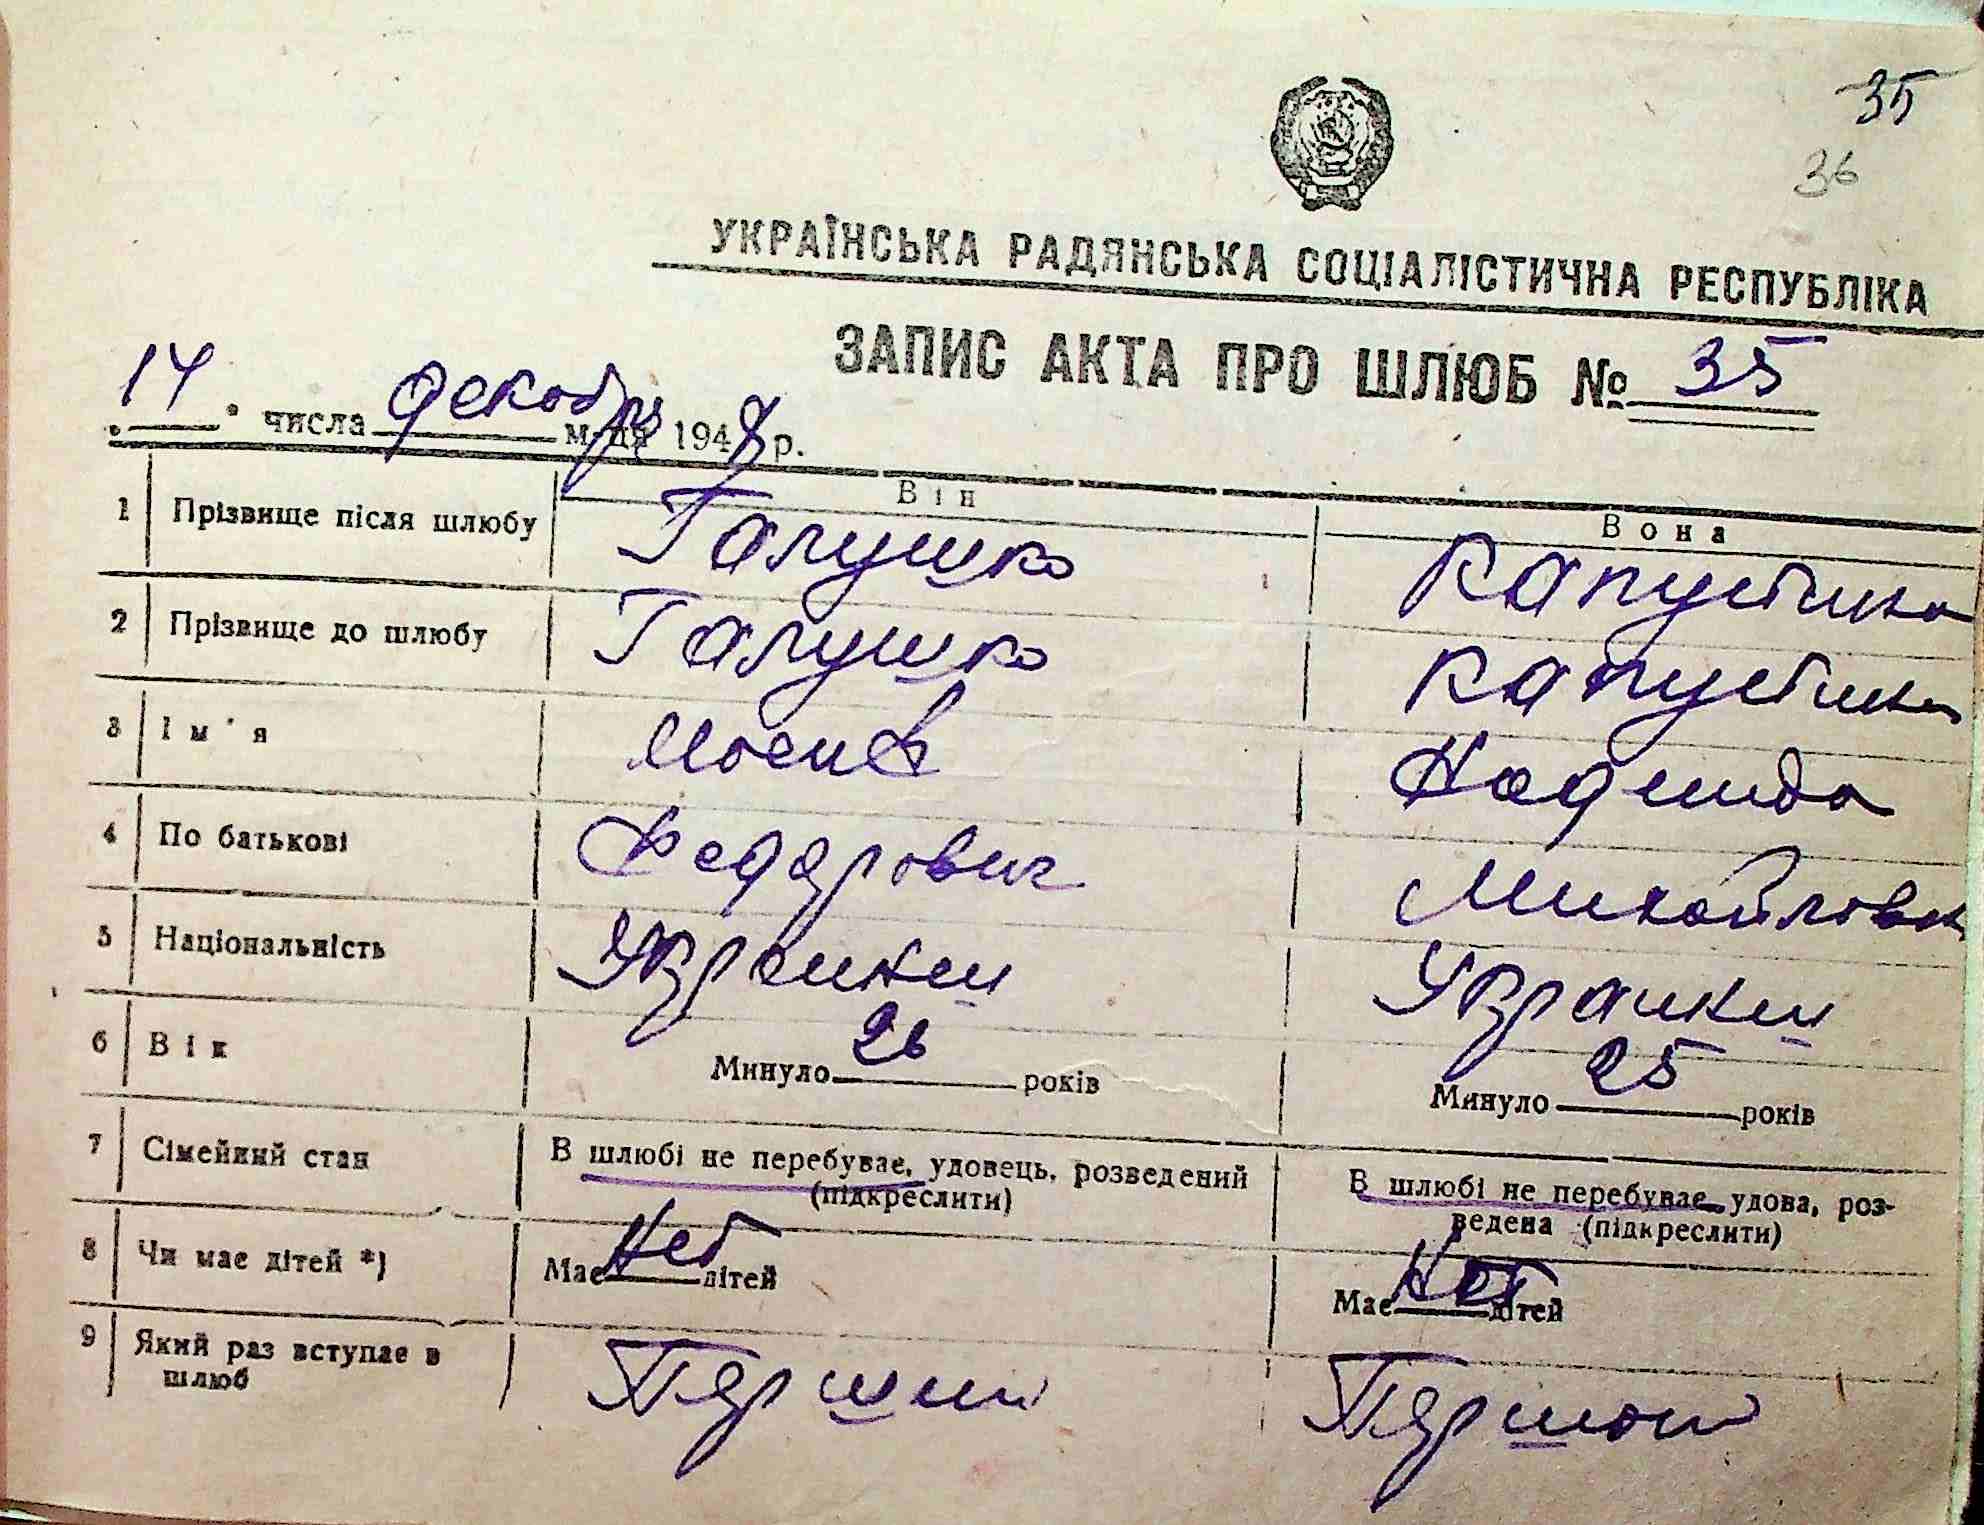 35
36
УКРАЇНСЬКА РАДЯНСЬКА СОЦІАЛІСТИЧНА РЕСПУБЛІКА
ЗАПИС АКТА ПРО ШЛЮБ № 35
14 числа декабря м-ця 194 р.
Він Вона
1 Прізвище після шлюбу Галушко Капустина
2 Прізвище до шлюбу Галушко Капустина
3 Ім'я Мосий Надежда
4 По батькові Федорович Михайловна
5 Національність Украинец Украинец
6 Вік Минуло 26 років Минуло 25 років
7 Сімейний стан В шлюбі не перебуває, удовець, розведений (підкреслити) В шлюбі не перебуває, удова, розведена (підкреслити)
8 Чи має дітей *) Має Нет дітей Має Нет дітей
9 Який раз вступає в шлюб Перший Першой